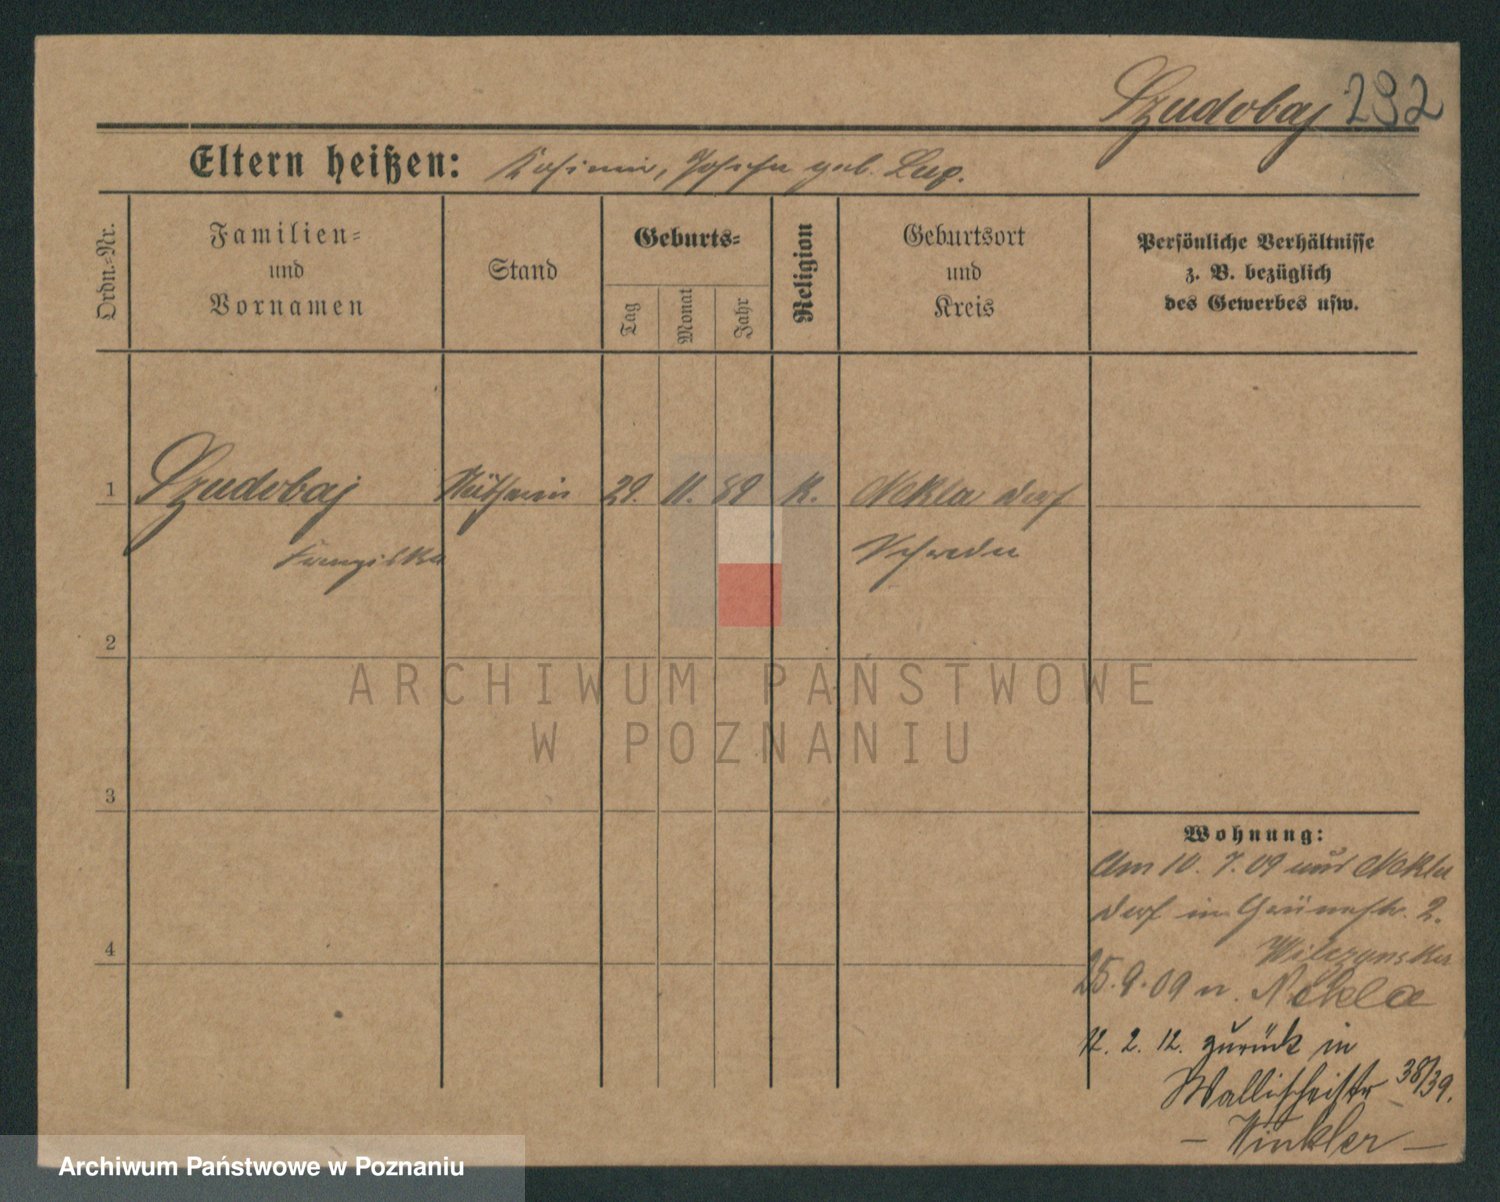 Szudobaj 292
Eltern heißen: Kasimir, Josefa geb. Lup.
Ordn.-Nr.
Familien-
und
Vornamen
Stand
Geburts-
Tag
Monat
Jahr
Religion
Geburtsort
und
Kreis
Persönliche Verhältnisse
z. B. bezüglich
des Gewerbes usw.
1 Szudobaj 29. 11. 89 K. Nekla Dorf
Franziska Schroda
2
3
4
Wohnung:
Am 10. 7. 09 aus Nekla
Dorf in Grünestr. 2.
Wilczynska
25. 9. 09 n. Nekla
12. 2. 12. zurück in
Wallischeistr 38/39.
– Winkler –
ARCHIWUM PAŃSTWOWE
W POZNANIU
Archiwum Państwowe w Poznaniu